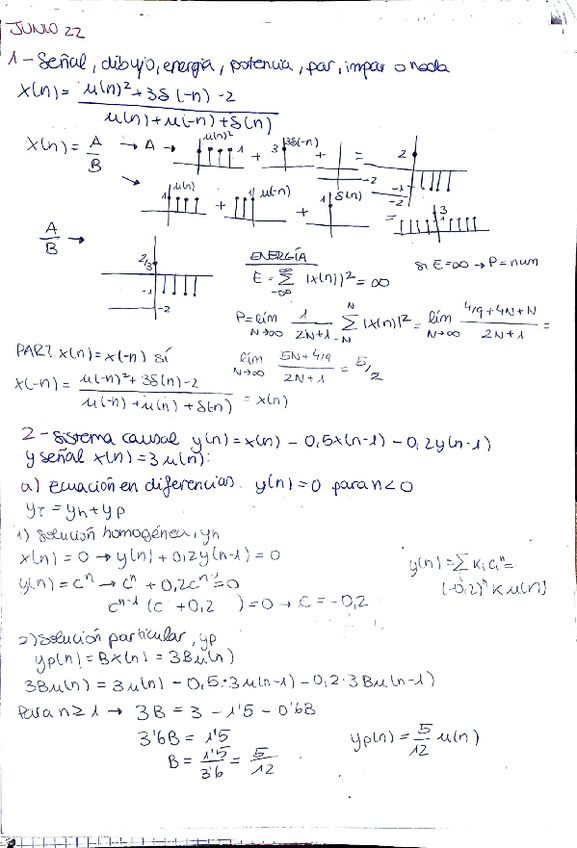 JUNIO 22
1 - Señal, dibujo, energía, potencia, par, impar o nada
x(n) = u(n)² + 3δ(-n) - 2 / u(n) + u(-n) + δ(n)
x(n) = A/B → A → u(n)² 1 + 3 3δ(-n) + -2 = 2 -1 -2
→ 1 u(n) + 1 u(-n) + 1 δ(n) = 3 1
A/B → 2/3 -1 -2
ENERGÍA
E = ∑ -∞ ∞ |x(n)|² = ∞
si E = ∞ → P = num
P = lím N→∞ 1/2N+1 ∑ -N N |x(n)|² = lím N→∞ 4/9 + 4N + N / 2N+1 =
lím N→∞ 5N + 4/9 / 2N+1 = 5/2
PAR? x(n) = x(-n) sí
x(-n) = u(-n)² + 3δ(n) - 2 / u(-n) + u(n) + δ(n) = x(n)
2 - Sistema causal y(n) = x(n) - 0,5x(n-1) - 0,2y(n-1)
y señal x(n) = 3u(n):
a) Ecuación en diferencias. y(n) = 0 para n<0
yT = yh + yp
1) Solución homogénea, yh
x(n) = 0 → y(n) + 0,2y(n-1) = 0
y(n) = cⁿ → cⁿ + 0,2cⁿ⁻¹ = 0
cⁿ⁻¹ (c + 0,2 ) = 0 → c = -0,2
y(n) = ∑ Ki ciⁿ =
(-0,2)ⁿ K u(n)
2) Solución particular, yp
yp(n) = Bx(n) = 3Bu(n)
3Bu(n) = 3u(n) - 0,5·3u(n-1) - 0,2·3Bu(n-1)
Para n≥1 → 3B = 3 - 1'5 - 0'6B
3'6B = 1'5
B = 1'5/3'6 = 5/12
yp(n) = 5/12 u(n)